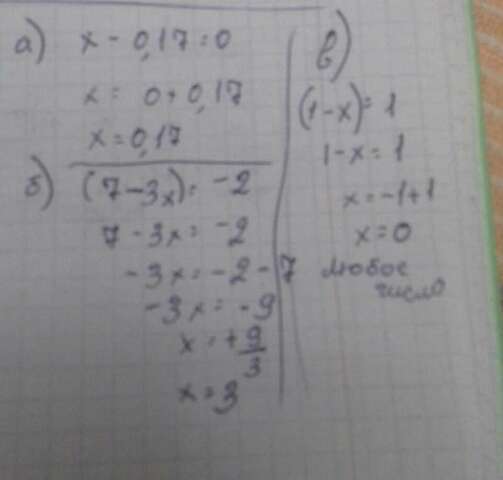 а) x - 0,17 = 0
x = 0 + 0,17
x = 0,17
б) (7 - 3x) = -2
7 - 3x = -2
-3x = -2 - 7
-3x = -9
x = + 9/3
x = 3
в)
(1 - x) = 1
1 - x = 1
x = -1 + 1
x = 0
любое
число